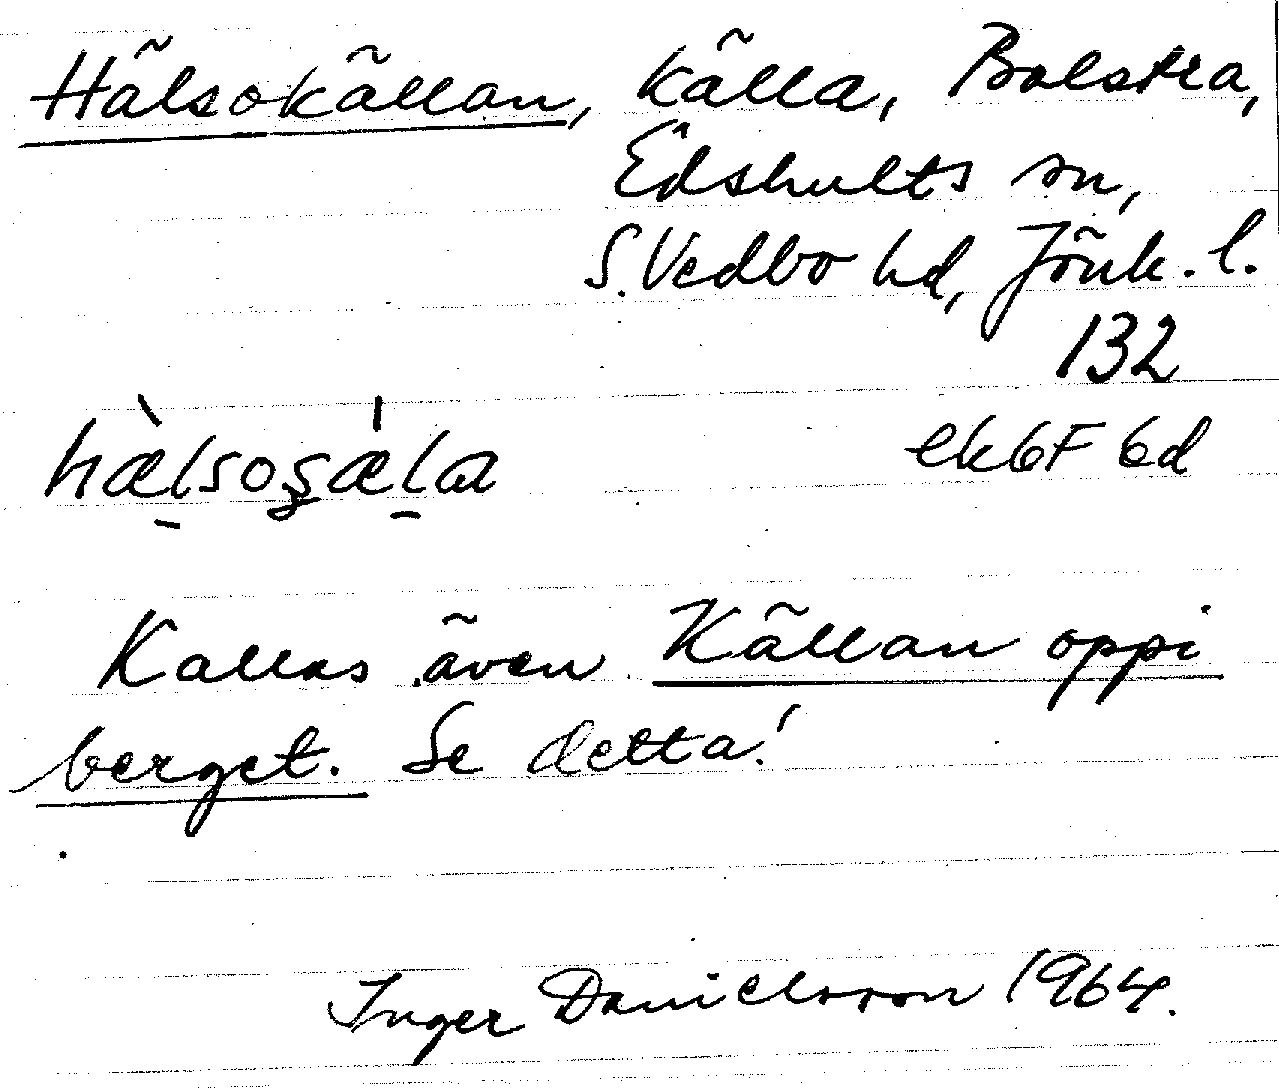 Hälsokällan, källa, Bolstra,
Edshults sn,
S. Vedbo hd, Jönk. l.
132
hæ̀lsoʂǽla
ek6F 6d
Kallas även Källan oppi
berget. Se detta!
Inger Danielsson 1964.